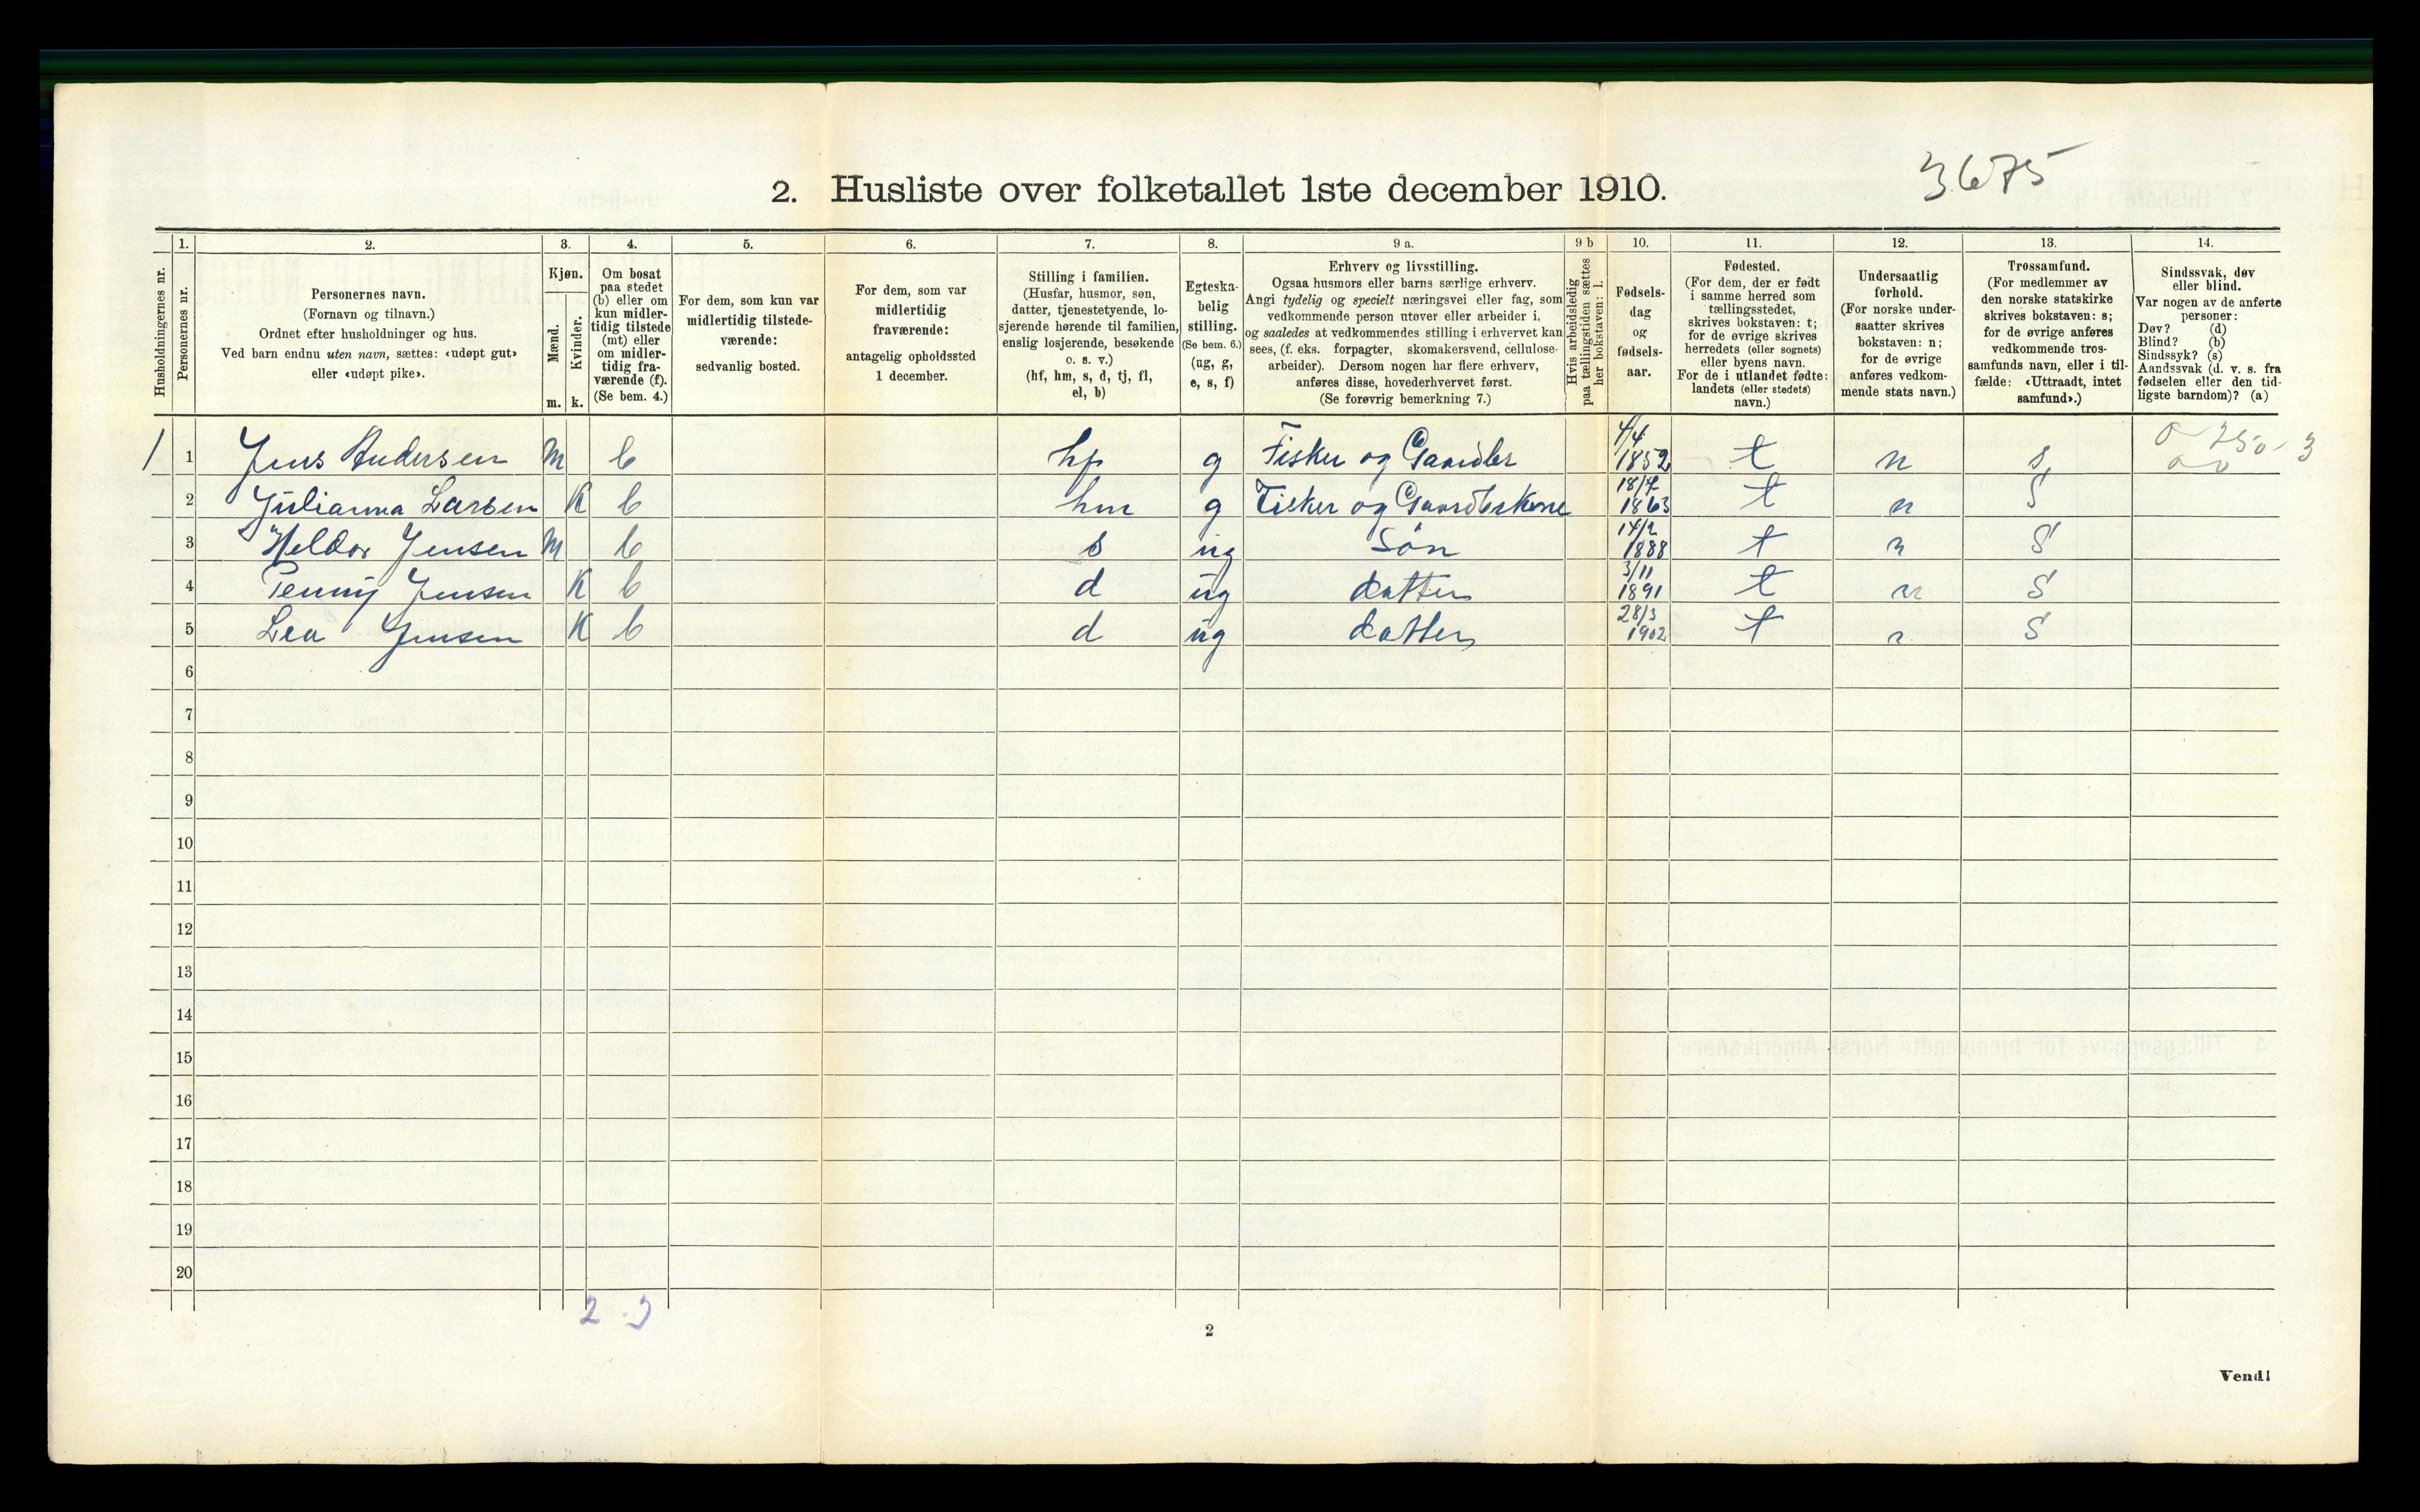 3675
2. Husliste over folketallet 1ste december 1910.
1. 2. 3. 4. 5. 6. 7. 8. 9 a. 9 b 10. 11. 12. 13. 14.
Husholdningernes nr.
Personernes nr.
Personernes navn.
(Fornavn og tilnavn.)
Ordnet efter husholdninger og hus.
Ved barn endnu uten navn, sættes: «udøpt gut»
eller «udøpt pike».
Kjøn.
Mænd.
Kvinder.
m. k.
Om bosat
paa stedet
(b) eller om
kun midler-
tidig tilstede
(mt) eller
om midler-
tidig fra-
værende (f).
(Se bem. 4.)
For dem, som kun var
midlertidig tilstede-
værende:
sedvanlig bosted.
For dem, som var
midlertidig
fraværende:
antagelig opholdssted
1 december.
Stilling i familien.
(Husfar, husmor, søn,
datter, tjenestetyende, lo-
sjerende hørende til familien,
enslig losjerende, besøkende
o. s. v.)
(hf, hm, s, d, tj, fl,
el, b)
Egteska-
belig
stilling.
(Se bem. 6.)
(ug, g,
e, s, f)
Erhverv og livsstilling.
Ogsaa husmors eller barns særlige erhverv.
Angi tydelig og specielt næringsvei eller fag, som
vedkommende person utøver eller arbeider i,
og saaledes at vedkommendes stilling i erhvervet kan
sees, (f. eks. forpagter, skomakersvend, cellulose-
arbeider). Dersom nogen har flere erhverv,
anføres disse, hovederhvervet først.
(Se forøvrig bemerkning 7.)
Hvis arbeidsledig
paa tællingstiden sættes
her bokstaven: l.
Fødsels-
dag
og
fødsels-
aar.
Fødested.
(For dem, der er født
i samme herred som
tællingsstedet,
skrives bokstaven: t;
for de øvrige skrives
herredets (eller sognets)
eller byens navn.
For de i utlandet fødte:
landets (eller stedets)
navn.)
Undersaatlig
forhold.
(For norske under-
saatter skrives
bokstaven: n;
for de øvrige
anføres vedkom-
mende stats navn.)
Trossamfund.
(For medlemmer av
den norske statskirke
skrives bokstaven: s;
for de øvrige anføres
vedkommende tros-
samfunds navn, eller i til-
fælde: «Uttraadt, intet
samfund».)
Sindssvak, døv
eller blind.
Var nogen av de anførte
personer:
Døv? (d)
Blind? (b)
Sindssyk? (s)
Aandssvak (d. v. s. fra
fødselen eller den tid-
ligste barndom)? (a)
1 1 Jens Andersen M b hf g Fisker og 4/4 1852 t n s
2 Julianna Larsen K b hm g Fisker og 1863 t n S
3 Heldor Jensen M b s ug Søn 14/2 1888 t n S
4 Penny Jensen K b d ug datter 3/11 1891 t n S
5 Lea Jensen K b d ug datter 28/3 1902 t n S
6
7
8
9
10
11
12
13
14
15
16
17
18
19
20
2 - 3
2
Vend!